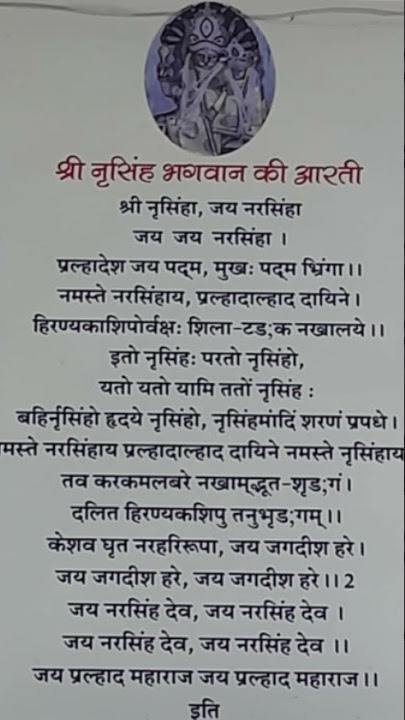 श्री नृसिंह भगवान की आरती
श्री नृसिंहा, जय नरसिंहा
जय जय नरसिंहा ।
प्रल्हादेश जय पद्म, मुखः पद्म भ्रिंगा।।
नमस्ते नरसिंहाय, प्रल्हादाल्हाद दायिने।
हिरण्यकाशिपोर्वक्षः शिला-टड;क नखालये।।
इतो नृसिंहः परतो नृसिंहो,
यतो यतो यामि ततों नृसिंह :
बहिर्नृसिंहो हृदये नृसिंहो, नृसिंहमांदिं शरणं प्रपधे।
मस्ते नरसिंहाय प्रल्हादाल्हाद दायिने नमस्ते नृसिंहाय
तव करकमलबरे नखामद्भूत-शृड;गं।
दलित हिरण्यकशिपु तनुभृड;गम्।।
केशव घृत नरहरिरूपा, जय जगदीश हरे।
जय जगदीश हरे, जय जगदीश हरे।। 2
जय नरसिंह देव, जय नरसिंह देव ।
जय नरसिंह देव, जय नरसिंह देव ।।
जय प्रल्हाद महाराज जय प्रल्हाद महाराज।।
इति